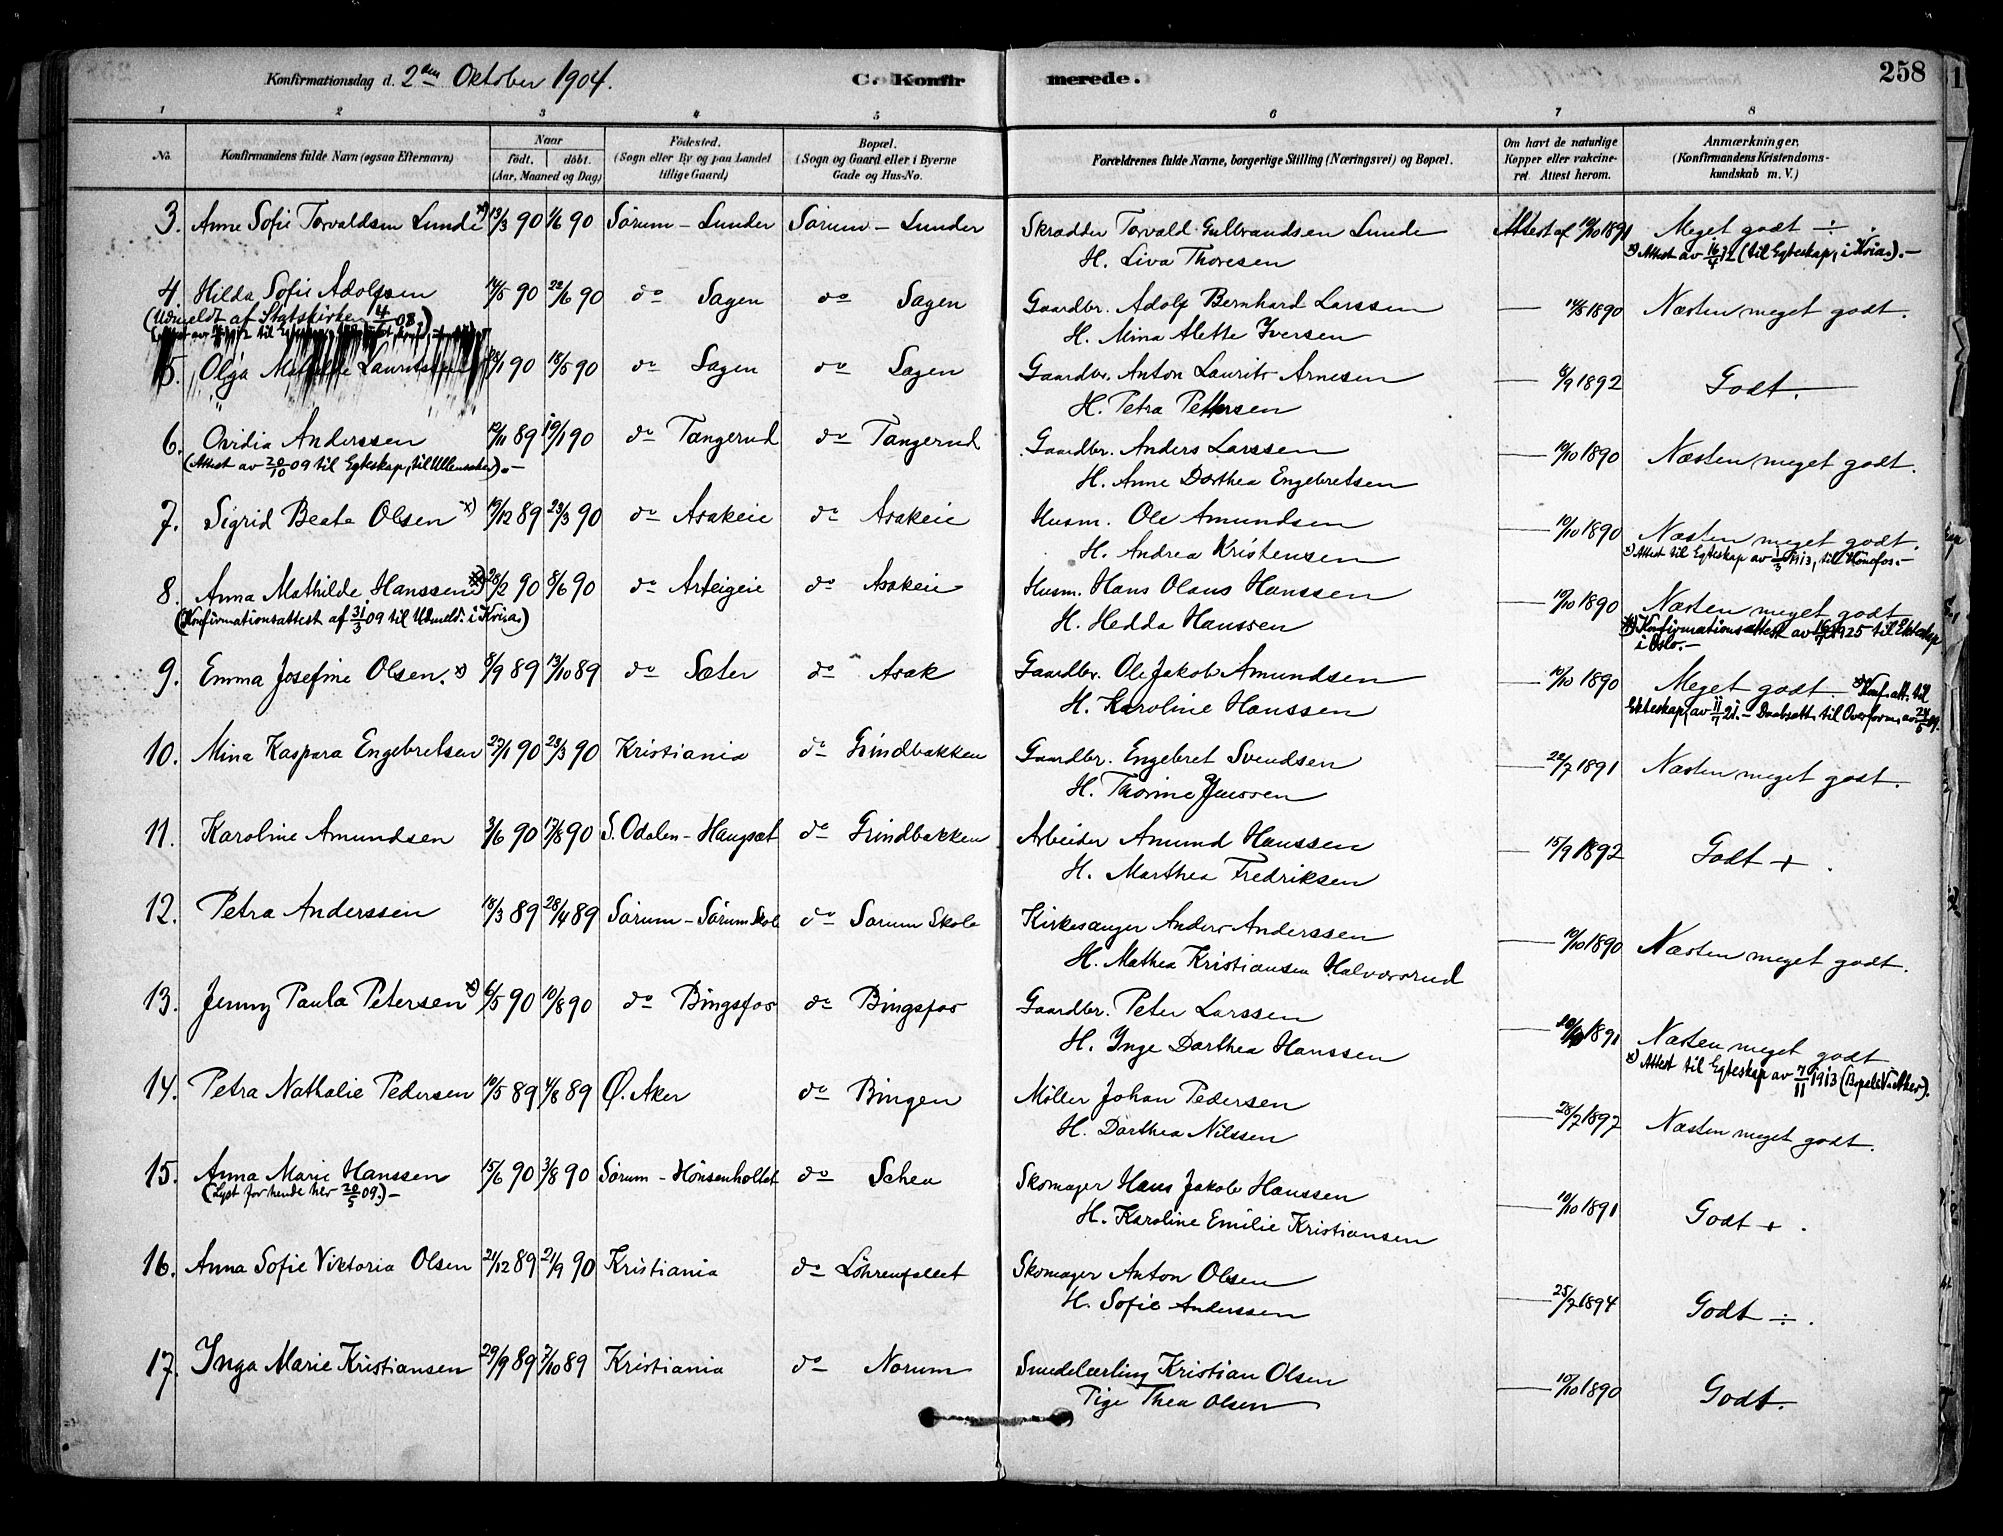 Konfirmationsdag d. 2den Oktober 1904. C. Konfirmerede. 258
1 2 3 4 5 6 7 8
No. Konfirmandens fulde Navn (ogsaa Efternavn) Naar födt. döbt. (Aar, Maaned og Dag) Födested. (Sogn eller By og paa Landet tillige Gaard) Bopæl. (Sogn og Gaard eller i Byerne Gade og Hus-No. Forældrenes fulde Navne, borgerlige Stilling (Næringsvei) og Bopæl. Om havt de naturlige Kopper eller vakcineret. Attest herom. Anmærkninger. (Konfirmandens Kristendomskundskab m. V.)
3. Anne Sofie Torvaldsen Lunde x) 13/3 90 1/6 90 Sørum - Lunder Sørum - Lunder Skrædder Torvald Gulbrandsen Lunde Attest af 10/10 1891 Meget godt ÷.
H. Liva Thoresen x) Attest av 16/4 12 (til Egteskap, i Kria). -
4. Hilda Sofie Adolfsen 14/5 90 22/6 90 do Sagen do Sagen Gaardbr. Adolf Bernhard Larssen — 14/8 1890 Næsten meget godt.
(Udmeldt af Statskirken 4/08)
H. Mina Alette Iversen
5. Olga Mathilde Lauritsen 28/1 90 18/5 90 do Sagen do Sagen Gaardbr. Anton Laurits Arnesen — 6/9 1892 Godt.
H. Petra Pettersen
6. Ovidia Anderssen 12/11 89 19/1 90 do Tangerud do Tangerud Gaardbr. Anders Larssen — 10/10 1890 Næsten meget godt.
(Attest av 20/10 09 til Egteskap, til Ullensaker). -
H. Anne Dorthea Engebretsen
7. Sigrid Beate Olsen x) 19/12 89 23/3 90 do Asakeie do Asakeie Husm. Ole Amundsen — 10/10 1890 Næsten meget godt.
H. Andrea Kristensen x) Attest til Egteskap av 1/3 1913, til Hønefos. -
8. Anna Mathilde Hanssen x) 28/2 90 8/6 90 do Arteigeie do Asakeie Husm. Hans Olaus Hanssen — 10/10 1890 Næsten meget godt
(Konfirmationsattest af 31/3 09 til Udmeld. i Kria.) H. Hedda Hanssen x) Konfirmationsattest av 16/1 1925 til Ekteskap
i Oslo. -
9. Emma Josefine Olsen. x) 8/9 89 13/10 89 do Sæter do Asak Gaardbr. Ole Jakob Amundsen — 10/10 1890 Meget godt - x) Konf. att. til
H. Karoline Hanssen Ekteskap, av 11/7 21. - Daabsatt. til Overform. av 24/5 09.
10. Mina Kaspara Engebretsen 27/1 90 23/3 90 Kristiania do Grindbakken Gaardbr. Engebret Svendsen — 22/7 1891 Næsten meget godt.
H. Thorine Jenssen
11. Karoline Amundsen 3/6 90 17/8 90 S. Odalen - Haugsæt do Grindbakken Arbeider Amund Hanssen — 15/9 1892 Godt + .
H. Marthea Fredriksen
12. Petra Anderssen 18/3 89 28/4 89 Sørum - Sørum Skole do Sørum Skole Kirkesanger Anders Anderssen — 10/10 1890 Næsten meget godt.
H. Mathea Kristiansen Halvorsrud
13. Jenny Paula Petersen x) 6/5 90 10/8 90 do Bingsfos do Bingsfos Gaardbr. Peter Larssen — 1891 Næsten meget godt
H. Inge Dorthea Hanssen x) Attest til Egteskap av 7/11 1913 (Bopæl V. Aker).
14. Petra Nathalie Pedersen 10/5 89 4/8 89 Ø. Aker do Bingen Møller Johan Pedersen — 28/7 1897 Næsten meget godt.
H. Dorthea Nilssen
15. Anna Marie Hanssen 15/6 90 3/8 90 Sørum - Hønsenholtet do Schea Skomager Hans Jakob Hanssen — 10/10 1891 Godt + .
(Lyst for hende her 20/5 09.) - H. Karoline Emilie Kristiansen
16. Anna Sofie Viktoria Olsen 21/12 89 21/9 90 Kristiania do Løhrenfallet Skomager Anton Olsen — 25/7 1894 Godt ÷.
H. Sofie Anderssen
17. Inga Marie Kristiansen 29/9 89 7/10 89 Kristiania do Norum Smedelærling Kristian Olsen — 10/10 1890 Godt.
Pige Thea Olsen